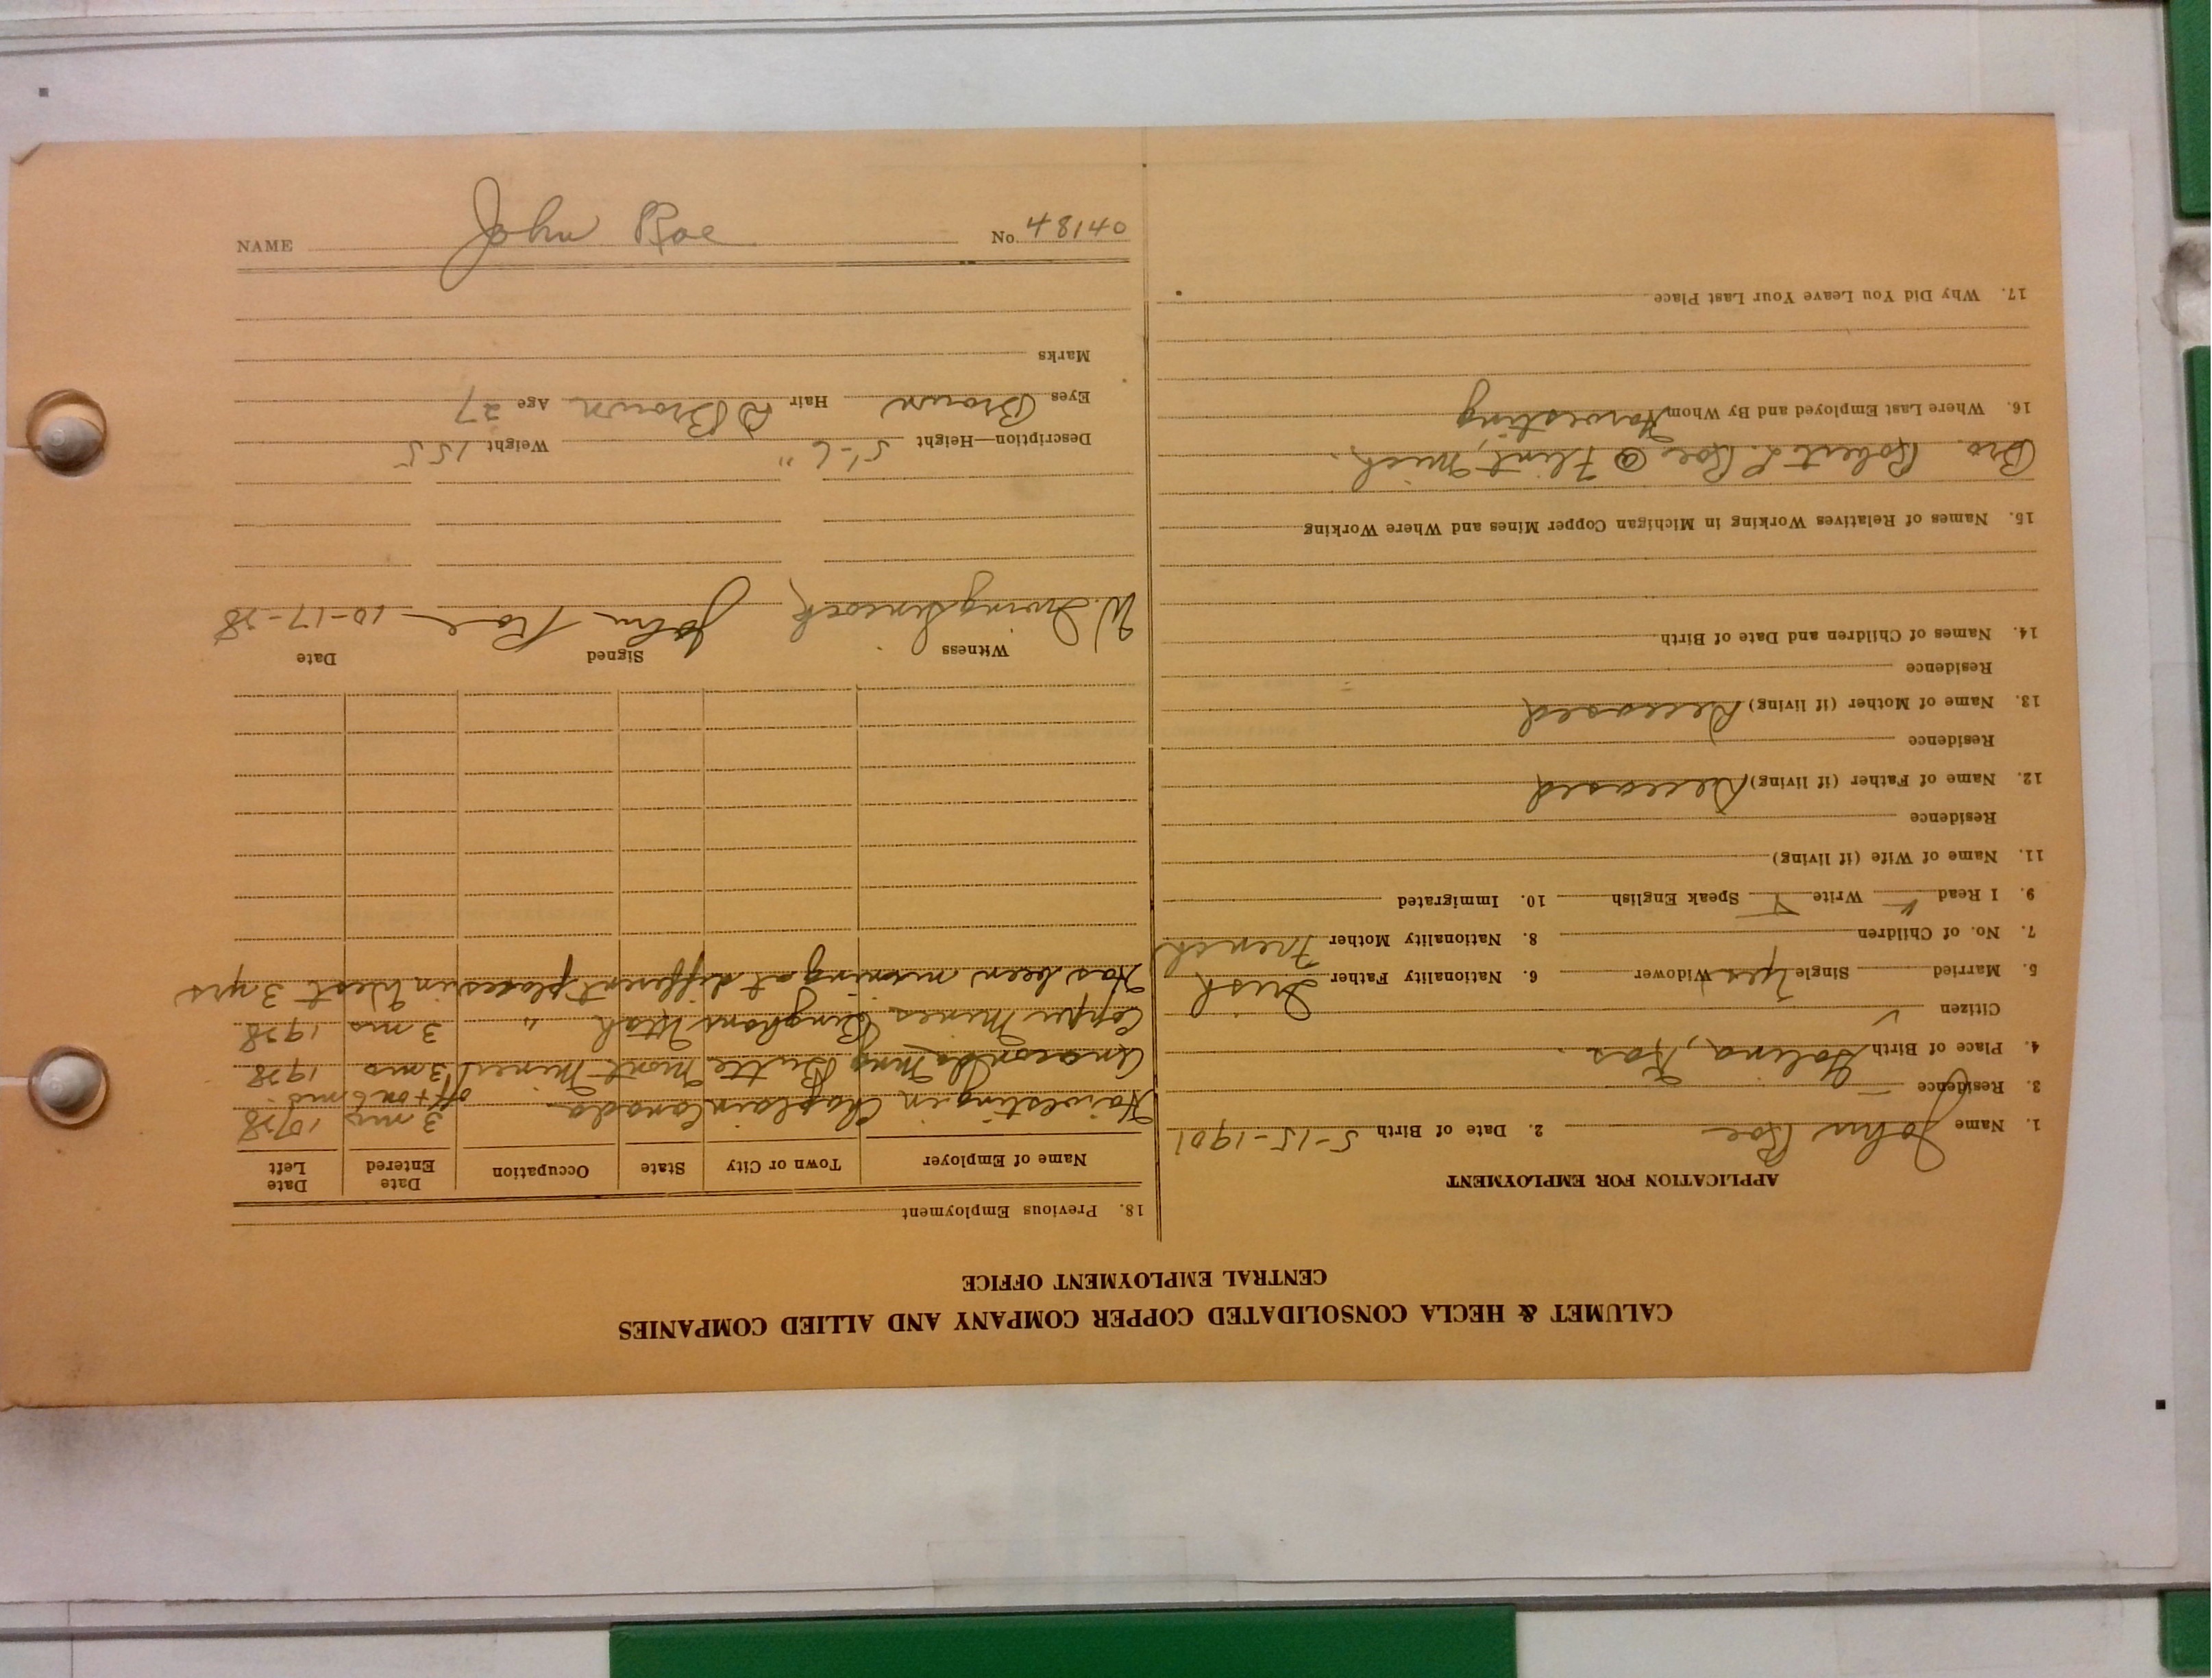 NAME John Roe No. 48140
CALUMET & HECLA CONSOLIDATED COPPER COMPANY AND ALLIED COMPANIES
CENTRAL EMPLOYMENT OFFICE
APPLICATION FOR EMPLOYMENT
1. Name John Roe 2. Date of Birth 5-15-1901
3. Residence —
4. Place of Birth Galena, Kas.
Citizen ✓
5. Married Single Yes Widower 6. Nationality Father Irish
7. No. of Children 8. Nationality Mother French
9. I Read ✓ Write ✓ Speak English 10. Immigrated
11. Name of Wife (if living)
Residence
12. Name of Father (if living) Deceased
Residence
13. Name of Mother (if living) Deceased
Residence
14. Names of Children and Date of Birth
15. Names of Relatives Working in Michigan Copper Mines and Where Working
Bro. Robert L. Roe @ Flint, Mich.
16. Where Last Employed and By Whom Harvesting
17. Why Did You Leave Your Last Place
18. Previous Employment
Name of Employer Town or City State Occupation Date Entered Date Left
Harvesting in Chaplain Canada 3 ms 1928
off & on 6 mo.
Anaconda Mng Butte Mont Miner 3 ms 1928
Copper Mines Bingham Utah " 3 ms 1928
Has been mining at different places in West 3 yrs
Witness Signed Date
W. Irving John Roe 10-17-28
Description—Height 5'-6" Weight 155
Eyes Brown Hair D Brown Age 27
Marks